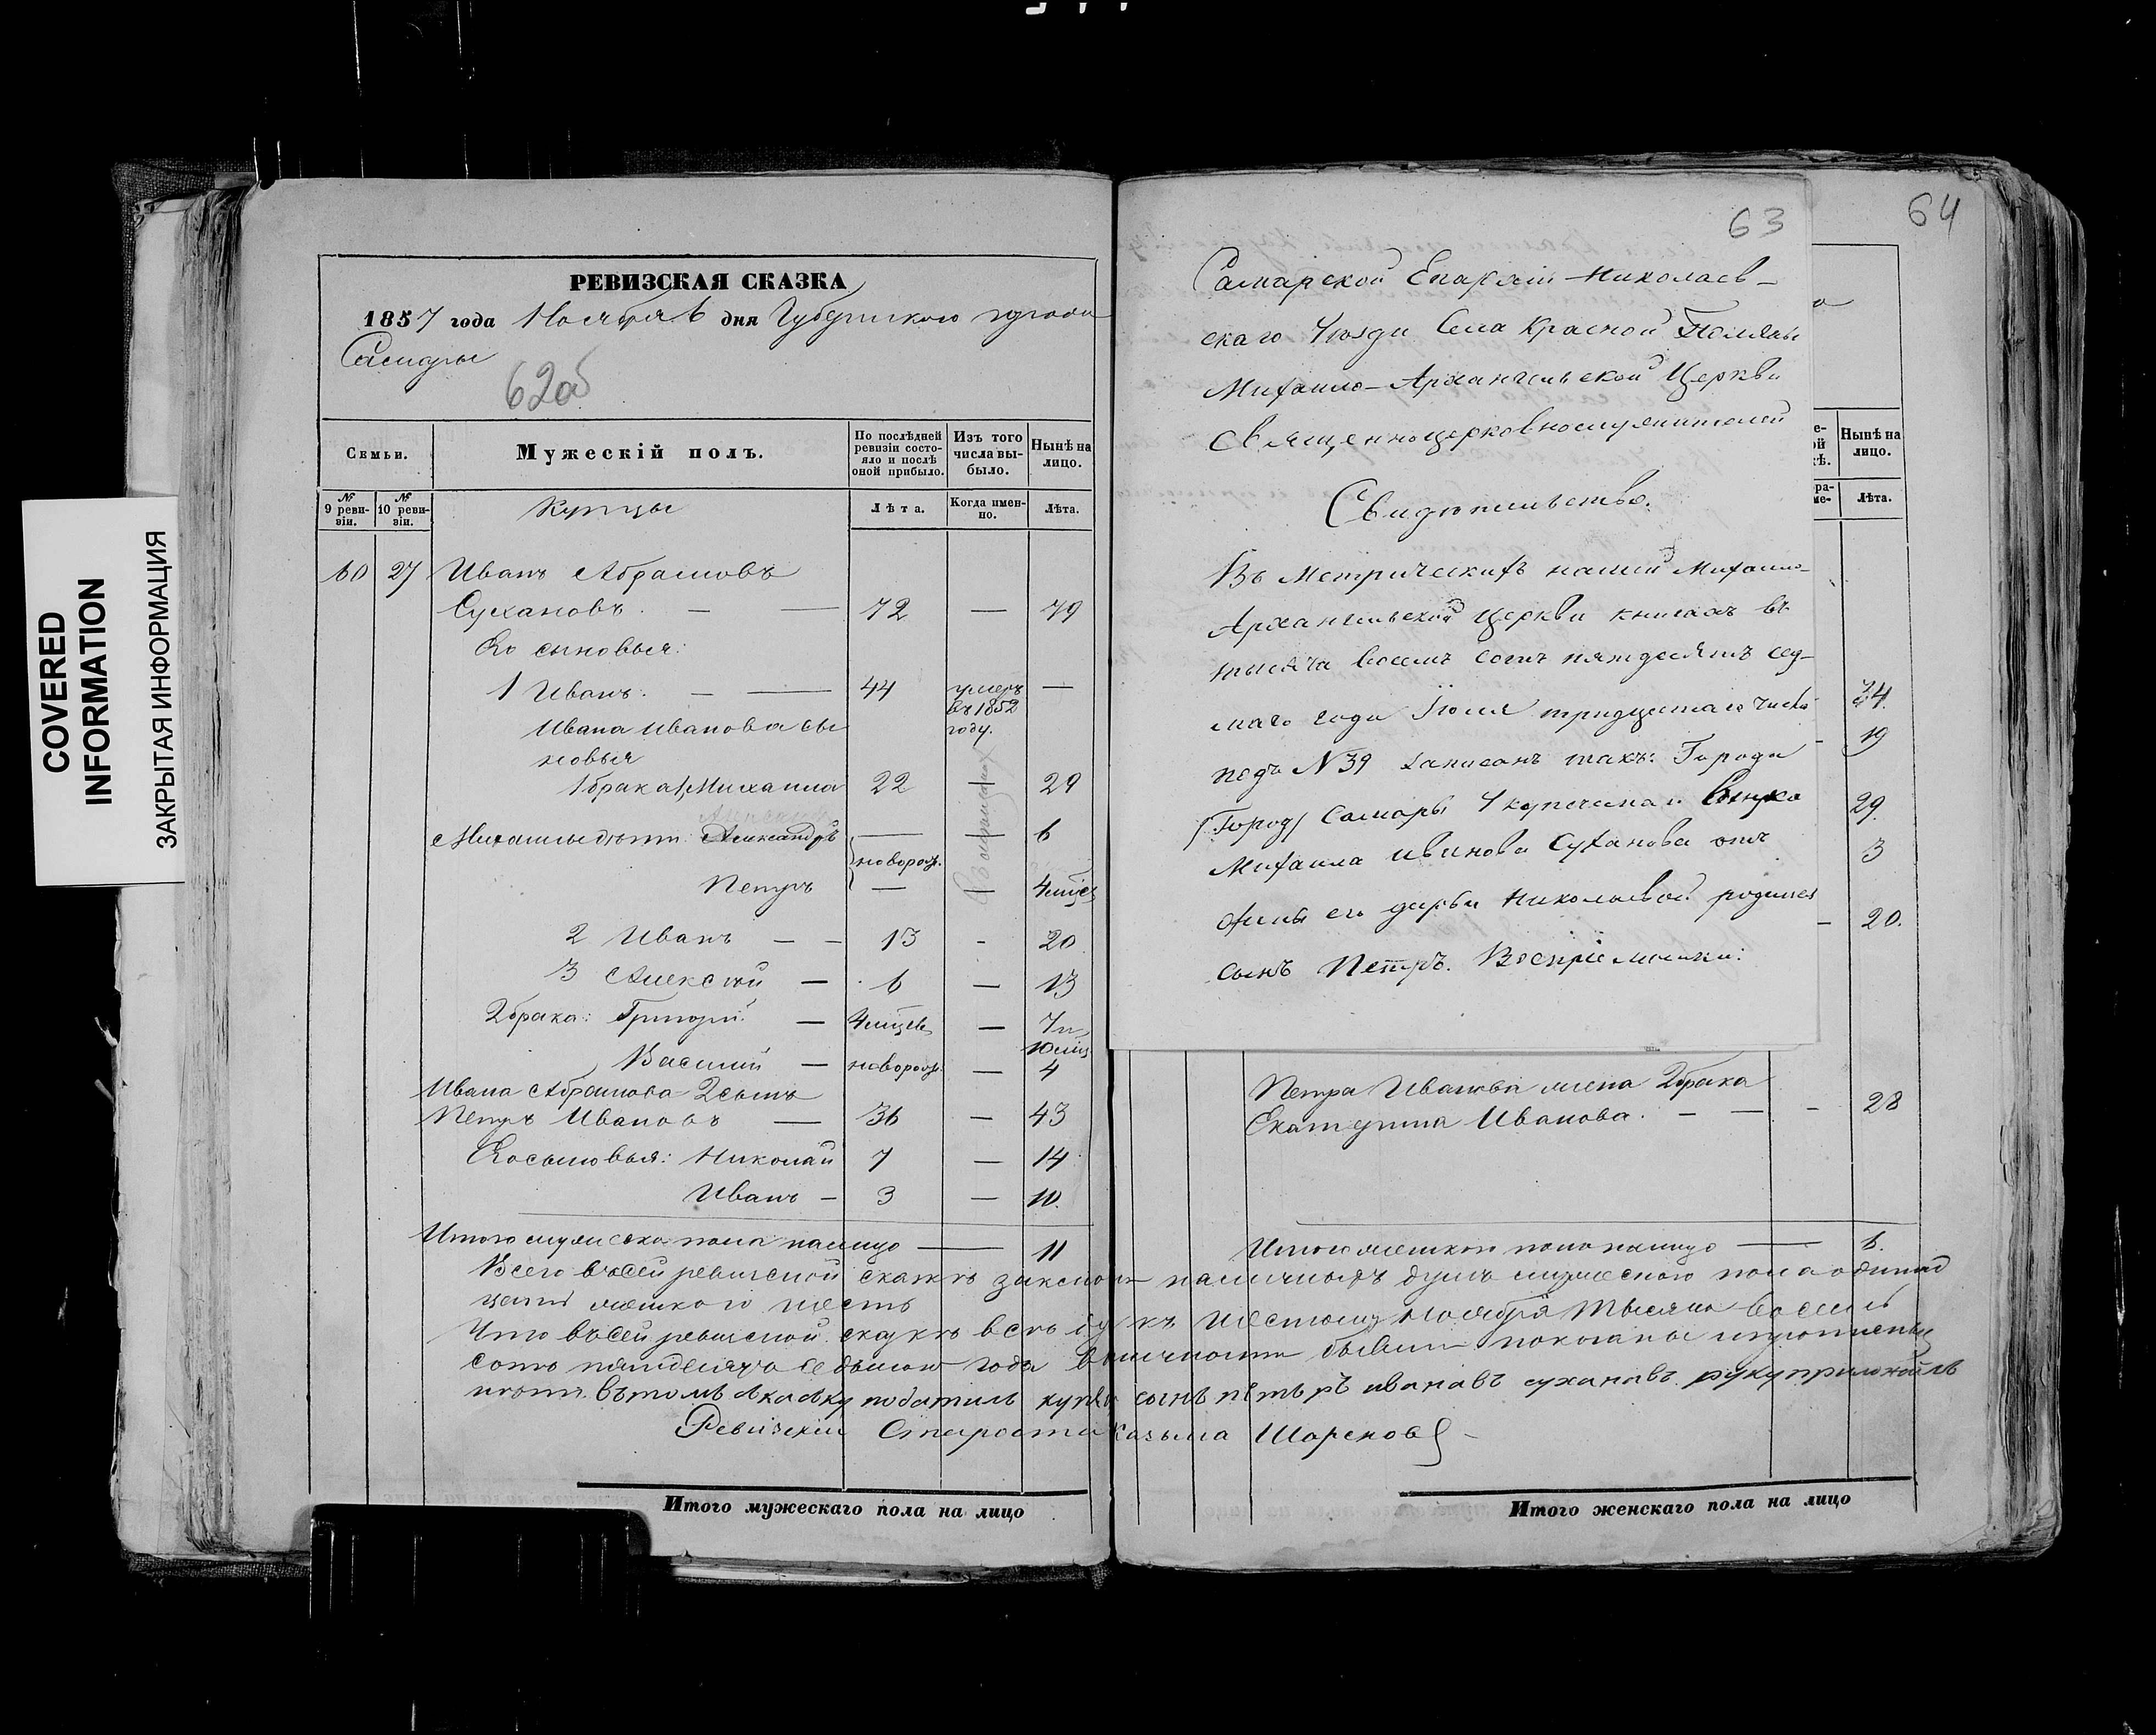 COVERED
INFORMATION
ЗАКРЫТАЯ ИНФОРМАЦИЯ
РЕВИЗСКАЯ СКАЗКА
1857 года Ноября 6 дня Губернскаго города
Самары
62об
Семьи.
Мужескій полъ.
По послѣдней ревизіи состо-
яло и послѣ
оной прибыло.
Изъ того
числа вы-
было.
Нынѣ на
лицо.
№
9 реви-
зіи.
№
10 реви-
зіи.
Купцы
Лѣта.
Когда имен-
но.
Лѣта.
60 27 Иванъ Абрамовъ
Сухановъ. — — 72 — 79
Его сыновья:
1 Иванъ. — — 44 умеръ въ 1852 году. —
Ивана Иванова сы
новья
1 брака 1, Михаила 22 — 29
Михаилы дѣти Александръ — — 6
новорож.
Петръ — — 4 мѣсе
2 Иванъ — — 13 - 20
3 Алексѣй — 6 — 13
2 брака: Григорій — 4 мѣсев — 7 и
10 мѣс
Василій — новорож. — 4
Ивана Абрамова 2 сынъ
Петръ Ивановъ — 36 — 43
Его сыновья: Николай 7 — 14
Иванъ — 3 — 10.
Итого мужеска пола налицо — 11
63
Самарской Епархіи Николаев-
скаго Уѣзда Села Красной Поляны
Михаило-Архангельской Церкви
Священноцерковнослужителей
Свидѣтельство.
Въ Метрическихъ нашей Михаило-
Архангельской Церкви книгахъ въ
тысяча восемь сотъ пятдесятъ сед-
маго года Іюля тридцатаго числа
подъ N 39 записанъ такъ: Города
/Город/ Самары купеческаго внука
Михаила Иванова Суханова отъ
жены его Дарьи Николаевой родился
сынъ Петръ. Воспріемники:
64
Нынѣ на
лицо.
Лѣта.
24.
19
29.
3
20.
Петра Иванова жена 2 брака
Екатерина Иванова. — — - 28
Итого женскаго пола налицо — 6.
Всего въ сей ревизской сказкѣ заключ наличныхъ душъ мужескаго пола одинад
цать женскаго шесть
Что въ сей ревизской сказкѣ всѣ къ шестому Ноября тысяча восемь
сотъ пятдесятъ седьмаго года въ наличности бывшіе показаны и пропущенныхъ
нѣтъ въ томъ скаску податиль купец сынъ петъръ иванавъ сухановъ руку приложилъ
Ревизскій Староста Казьма Шоренков
Итого мужескаго пола на лицо
Итого женскаго пола на лицо